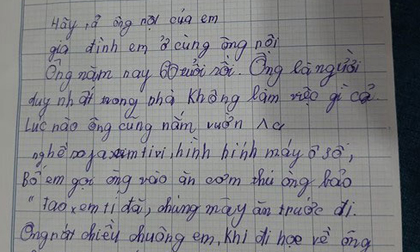 Hãy tả ông nội của em
gia đình em ở cùng ông nội
Ông năm nay 60 tuổi rồi. Ông là người
duy nhất trong nhà không làm việc gì cả
Lúc nào ông cũng nằm vườn ra
nghế xoxa xem tivi, hình hính máy ô sô,
Bố em gọi ông vào ăn cơm thì ông bảo
"Tao xem ti đã, chúng mày ăn trước đi.
Ông nội chiều chuộng em, khi đi học về ông